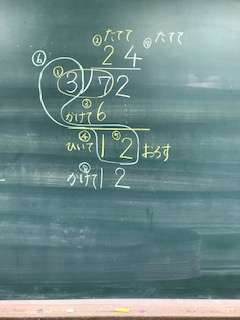 ②たてて ⑦たてて
2 4
⑥ ①3 7 2
③かけて 6
④ひいて 1 ⑤2 おろす
⑧かけて 1 2